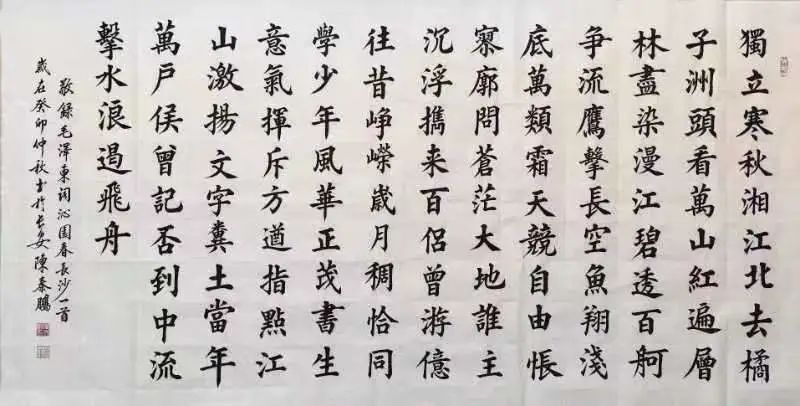 獨立寒秋湘江北去橘
子洲頭看萬山紅遍層
林盡染漫江碧透百舸
争流鷹擊長空魚翔淺
底萬類霜天競自由悵
寥廓問蒼茫大地誰主
沉浮携来百侣曾游億
往昔峥嶸歲月稠恰同
學少年風華正茂書生
意氣揮斥方遒指點江
山激揚文字糞土當年
萬户侯曾記否到中流
擊水浪遏飛舟
敬録毛澤東词沁園春長沙一首
歲在癸卯仲秋书於長安陳泰鵬